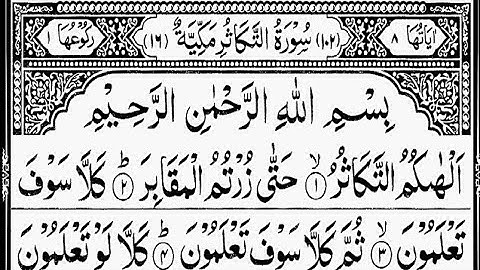 اٰيَاتُهَا ٨ (١٠٢) سُوْرَةُ التَّكَاثُرِ مَكِّيَّةٌ (١٦) رُكُوْعُهَا ١
بِسْمِ اللّٰهِ الرَّحْمٰنِ الرَّحِيْمِ
اَلْهٰىكُمُ التَّكَاثُرُ ۙ﴿١﴾ حَتّٰى زُرْتُمُ الْمَقَابِرَ ؕ﴿٢﴾ كَلَّا سَوْفَ
تَعْلَمُوْنَ ۙ﴿٣﴾ ثُمَّ كَلَّا سَوْفَ تَعْلَمُوْنَ ؕ﴿٤﴾ كَلَّا لَوْ تَعْلَمُوْنَ